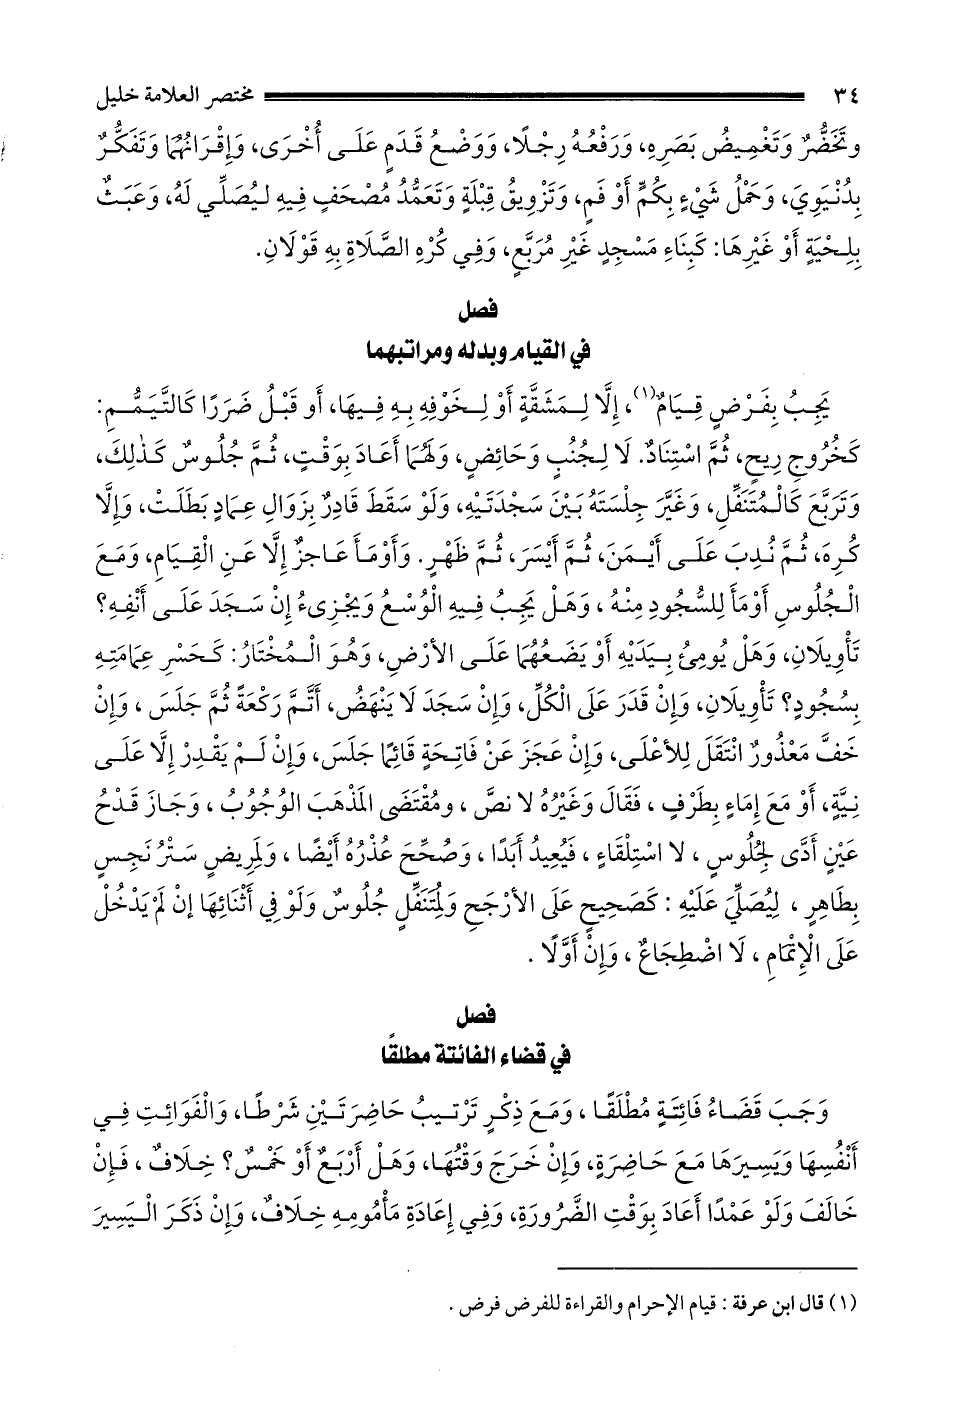 ٣٤ مختصر العلامة خليل
وتَخَصُّرٌ وَتَغْمِيضُ بَصَرِهِ، وَرَفْعُهُ رِجْلًا، وَوَضْعُ قَدَمٍ عَلَى أُخْرَى، وَإِقْرَانُهُمَا وَتَفَكُّرٌ
بِدُنْيَوِيٍّ، وَحَمْلُ شَيْءٍ بِكُمٍّ أَوْ فَمٍ، وَتَزْوِيقُ قِبْلَةٍ وَتَعَمُّدُ مُصْحَفٍ فِيهِ لِيُصَلِّي لَهُ، وَعَبَثٌ
بِلِحْيَةٍ أَوْ غَيْرِهَا: كَبِنَاءِ مَسْجِدٍ غَيْرِ مُرَبَّعٍ، وَفِي كُرْهِ الصَّلَاةِ بِهِ قَوْلَانِ.
فصل
في القيام وبدله ومراتبهما
يَجِبُ بِفَرْضٍ قِيَامٌ(١)، إِلَّا لِمَشَقَّةٍ أَوْ لِخَوْفِهِ بِهِ فِيهَا، أَو قَبْلُ ضَرَرًا كَالتَّيَمُّمِ:
كَخُرُوجِ رِيحٍ، ثُمَّ اسْتِنَادٌ. لَا لِجُنُبٍ وَحَائِضٍ، وَلَهُمَا أَعَادَ بِوَقْتٍ، ثُمَّ جُلُوسٌ كَذٰلِكَ،
وَتَرَبَّعَ كَالْمُتَنَفِّلِ، وَغَيَّرَ جِلْسَتَهُ بَيْنَ سَجْدَتَيْهِ، وَلَوْ سَقَطَ قَادِرٌ بِزَوَالِ عِمَادٍ بَطَلَتْ، وَإِلَّا
كُرِهَ، ثُمَّ نُدِبَ عَلَى أَيْمَنَ، ثُمَّ أَيْسَرَ، ثُمَّ ظَهْرٍ. وَأَوْمَأَ عَاجِزٌ إِلَّا عَنِ الْقِيَامِ، وَمَعَ
الْجُلُوسِ أَوْمَأَ لِلسُّجُودِ مِنْهُ ، وَهَلْ يَجِبُ فِيهِ الْوُسْعُ وَيُجْزِىءُ إِنْ سَجَدَ عَلَى أَنْفِهِ؟
تَأْوِيلَانِ، وَهَلْ يُومِئُ بِيَدَيْهِ أَوْ يَضَعُهُمَا عَلَى الأَرْضِ، وَهُوَ الْمُخْتَارُ: كَحَسْرِ عِمَامَتِهِ
بِسُجُودٍ؟ تَأْوِيلَانِ، وَإِنْ قَدَرَ عَلَى الْكُلِّ، وَإِنْ سَجَدَ لَا يَنْهَضُ، أَتَمَّ رَكْعَةً ثُمَّ جَلَسَ ، وَإِنْ
خَفَّ مَعْذُورٌ انْتَقَلَ لِلأَعْلَى، وَإِنْ عَجَزَ عَنْ فَاتِحَةٍ قَائِمًا جَلَسَ، وَإِنْ لَمْ يَقْدِرْ إِلَّا عَلَى
نِيَّةٍ، أَوْ مَعَ إِمَاءٍ بِطَرْفٍ ، فَقَالَ وَغَيْرُهُ لا نصَّ ، ومُقْتَضَى المَذْهَبِ الوُجُوبُ ، وَجَازَ قَدْحُ
عَيْنٍ أَدَّى لِجُلُوسٍ ، لا اسْتِلْقَاءٍ ، فَيُعِيدُ أَبَدًا ، وَصُحِّحَ عُذْرُهُ أَيْضًا ، وَلِمَرِيضٍ سَتْرُ نَجِسٍ
بِطَاهِرٍ ، لِيُصَلِّيَ عَلَيْهِ : كَصَحِيحٍ عَلَى الأَرْجَحِ وَلِمُتَنَفِّلٍ جُلُوسٌ وَلَوْ فِي أَثْنَائِهَا إِنْ لَمْ يَدْخُلْ
عَلَى الْإِتْمَامِ ، لَا اضْطِجَاعٌ ، وَإِنْ أَوَّلًا .
فصل
في قضاء الفائتة مطلقًا
وَجَبَ قَضَاءُ فَائِتَةٍ مُطْلَقًا ، وَمَعَ ذِكْرٍ تَرْتِيبُ حَاضِرَتَيْنِ شَرْطًا، وَالْفَوَائِتِ فِي
أَنْفُسِهَا وَيَسِيرَهَا مَعَ حَاضِرَةٍ، وَإِنْ خَرَجَ وَقْتُهَا، وَهَلْ أَرْبَعٌ أَوْ خَمْسٌ؟ خِلَافٌ ، فَإِنْ
خَالَفَ وَلَوْ عَمْدًا أَعَادَ بِوَقْتِ الضَّرُورَةِ، وَفِي إِعَادَةِ مَأْمُومِهِ خِلَافٌ، وَإِنْ ذَكَرَ الْيَسِيرَ
(١) قال ابن عرفة : قيام الإحرام والقراءة للفرض فرض .